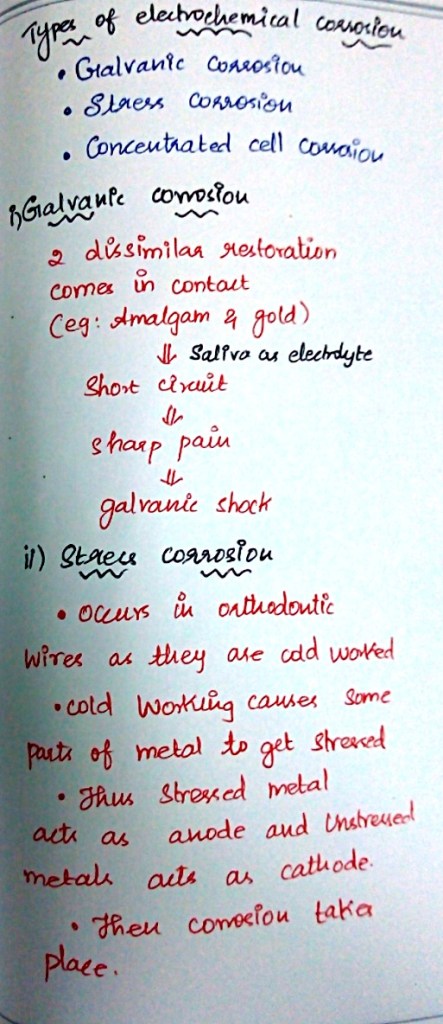 Types of electrochemical corrosion
• Galvanic Corrosion
• Stress corrosion
• Concentrated cell corrosion
i) Galvanic corrosion
2 dissimilar restoration
comes in contact
(eg: Amalgam & gold)
⇓ Saliva as electrolyte
Short circuit
⇓
sharp pain
⇓
galvanic shock
ii) Stress corrosion
• occurs in orthodontic
wires as they are cold worked
• cold working causes some
parts of metal to get stressed
• Thus stressed metal
acts as anode and Unstressed
metals acts as cathode.
• Then corrosion takes
place.